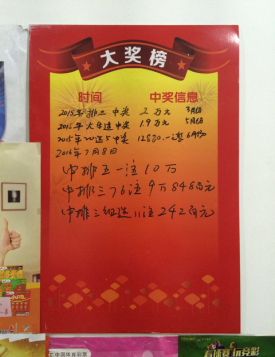 大奖榜
时间 中奖信息
2015年排三中奖 2万元 3月份
2015年大乐透中奖 1.9万元 5月份
2015年22选5中奖 12880一注 6月份
2016年7月8日
中排五一注10万
中排三76注9万848百元
中排三组选11注242百元